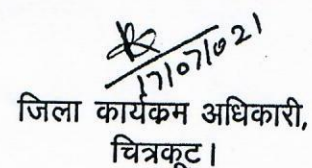 17/07/021
जिला कार्यकम अधिकारी,
चित्रकूट।